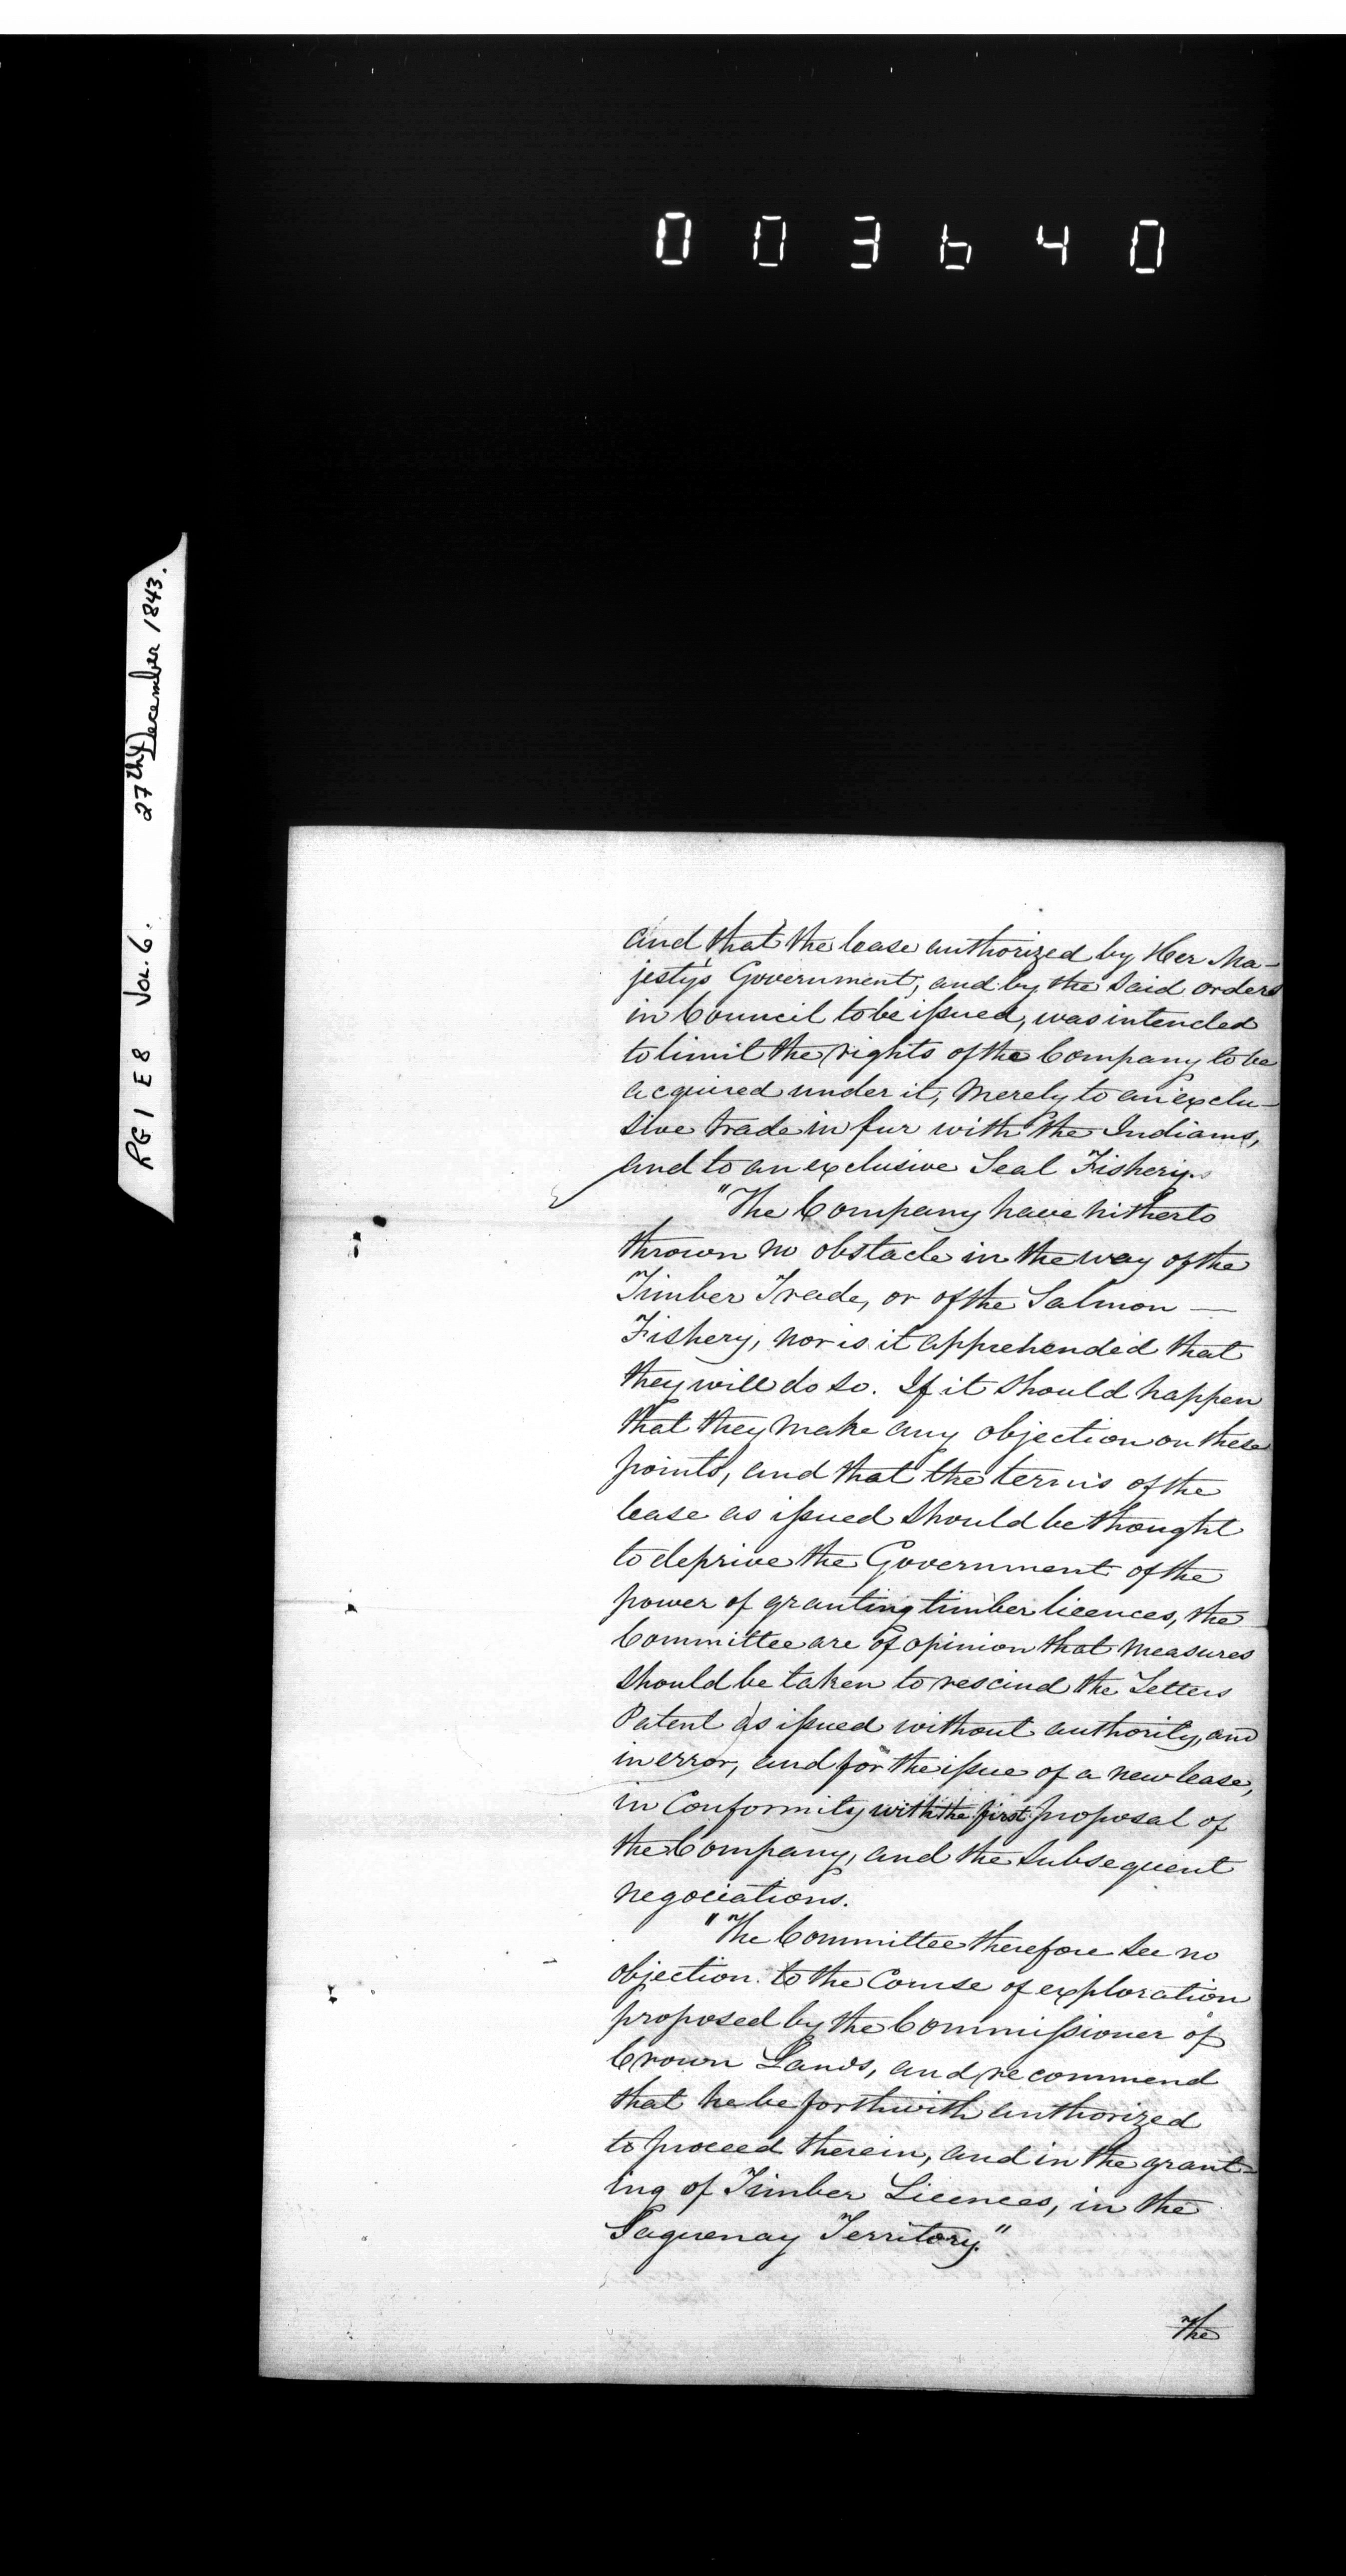 003640
RG1 E8 Vol. 6. 27th December 1843.
and that the lease authorized by Her Ma-
jesty's Government, and by the said orders
in Council to be issued, was intended
to limit the rights of the Company to be
acquired under it, merely to an exclu-
sive trade in fur with the Indians,
and to an exclusive Seal Fishery.
"The Company have hitherto
thrown no obstacle in the way of the
Timber Trade, or of the Salmon —
Fishery, nor is it apprehended that
they will do so. If it should happen
that they make any objection on these
points, and that the terms of the
lease as issued should be thought
to deprive the Government of the
power of granting timber licences, the
Committee are of opinion that measures
should be taken to rescind the Letters
Patent as issued without authority, and
in error, and for the issue of a new lease,
in Conformity with the first proposal of
the Company, and the subsequent
negociations.
"The Committee therefore see no
objection to the Course of exploration
proposed by the Commissioner of
Crown Lands, and recommend
that he be forthwith authorized
to proceed therein, and in the grant-
ing of Timber Licences, in the
Saguenay Territory."
The